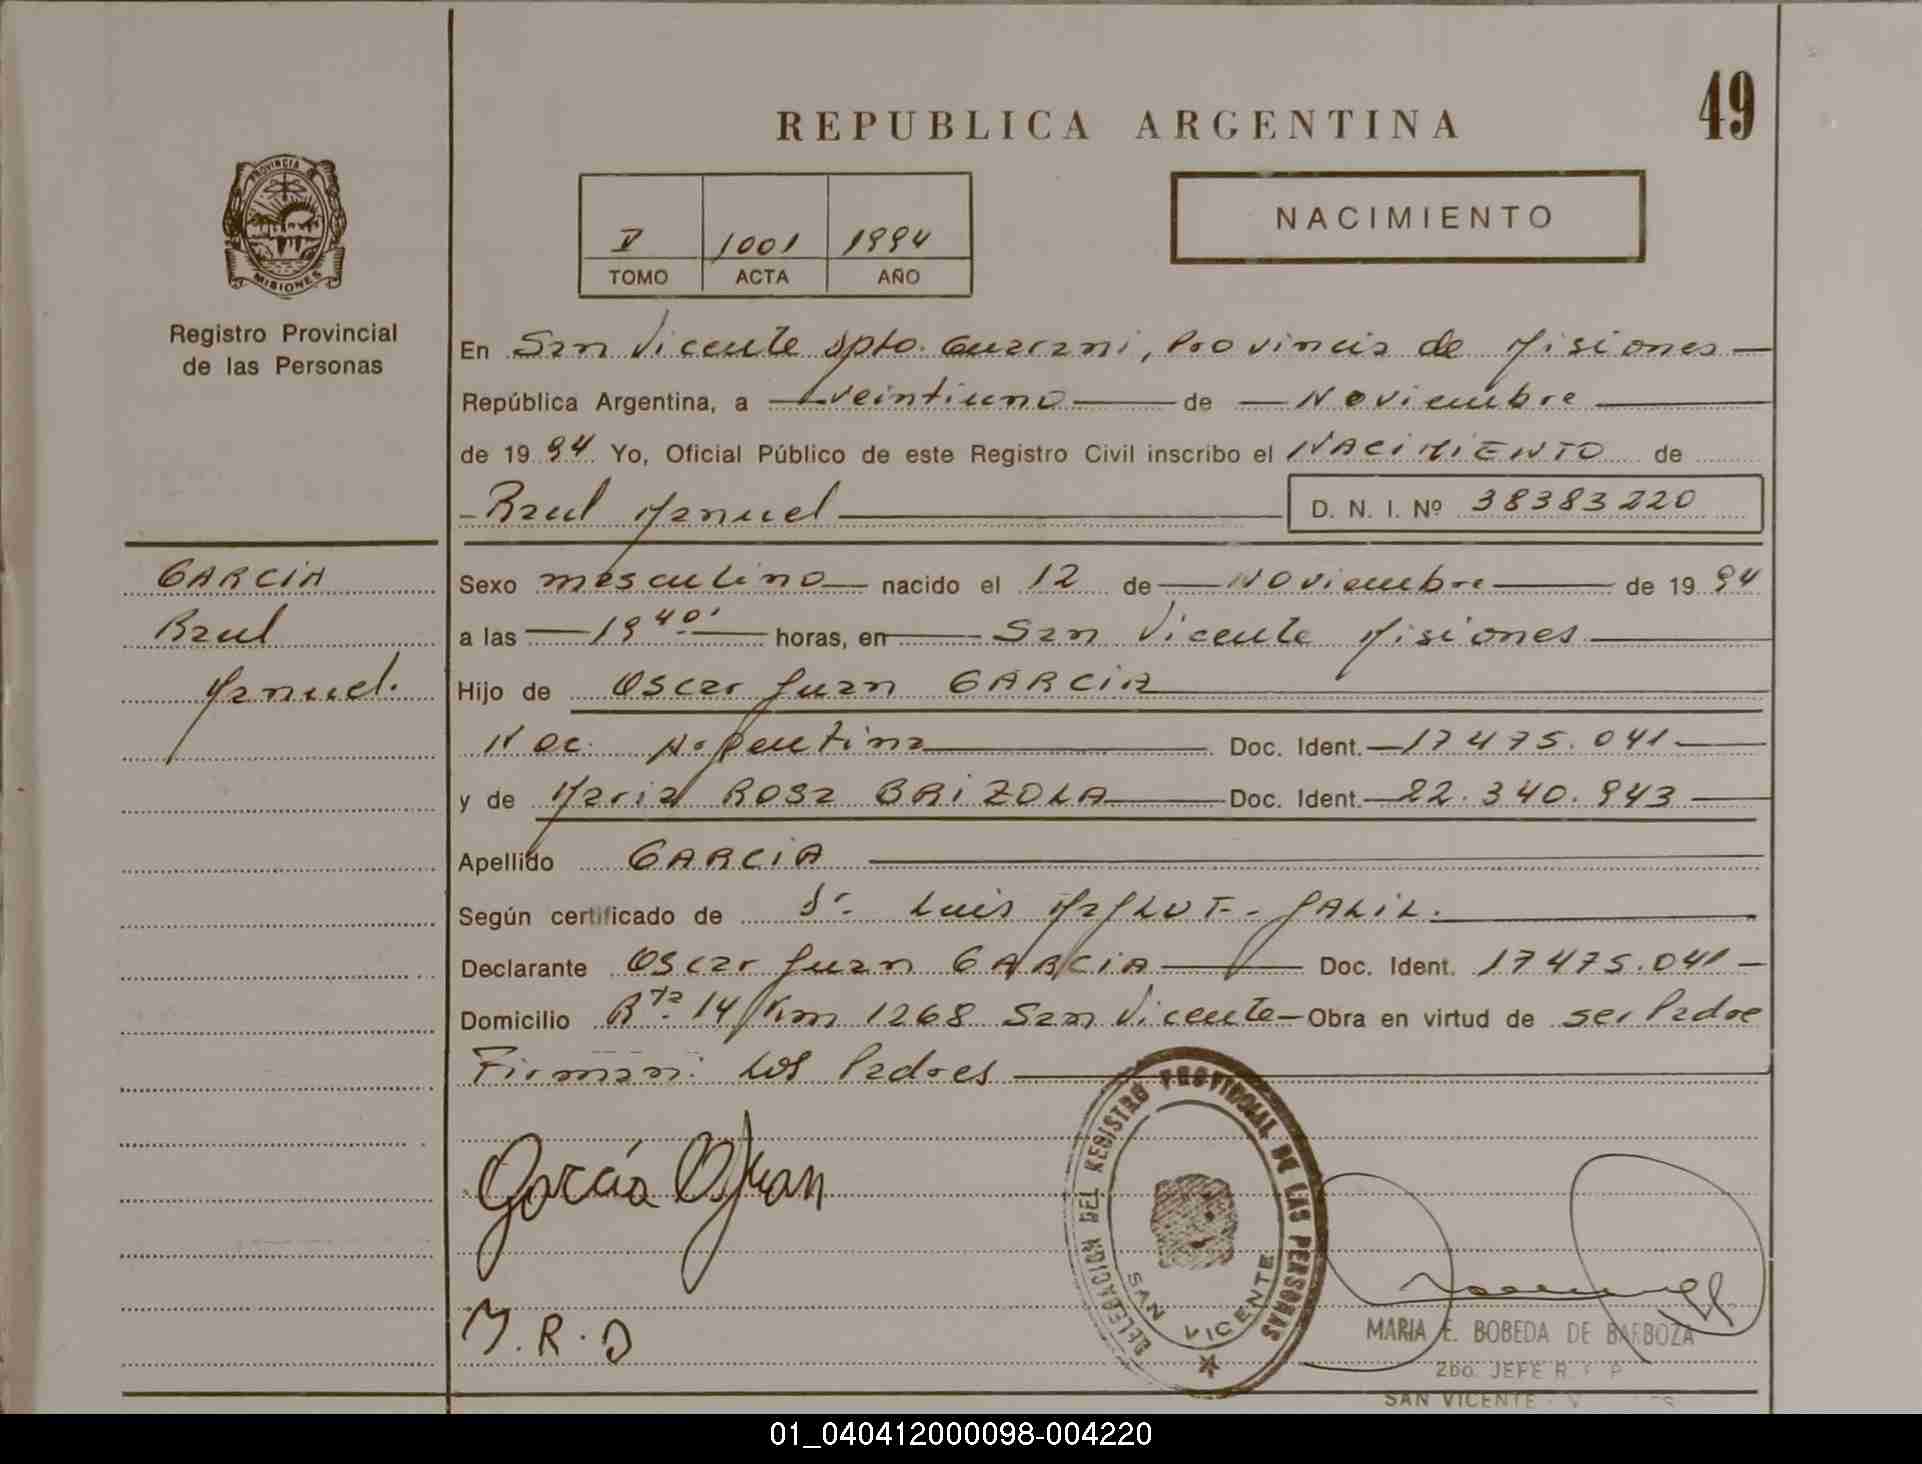 49
REPUBLICA ARGENTINA
PROVINCIA
MISIONES
Registro Provincial
de las Personas
V 1001 1994
TOMO ACTA AÑO
NACIMIENTO
En San Vicente Dpto. Guarani, Provincia de Misiones
República Argentina, a veintiuno de Noviembre
de 1994 Yo, Oficial Público de este Registro Civil inscribo el NACIMIENTO de
Raul Manuel D. N. I. Nº 38383220
GARCIA
Raul
Manuel.
Sexo masculino nacido el 12 de Noviembre de 1994
a las 19 40' horas, en San Vicente Misiones
Hijo de Oscar Juan GARCIA
Nac. Argentina Doc. Ident. 17475.041
y de Maria Rosa BRIZOLA Doc. Ident. 22.340.943
Apellido GARCIA
Según certificado de Dr. Luis JALIL.
Declarante Oscar Juan GARCIA Doc. Ident. 17475.041
Domicilio Rta. 14 Km 1268 San Vicente Obra en virtud de ser Padre
Firman: los Padres
García OJuan
M.R.B
DELEGACION DEL REGISTRO PROVINCIAL DE LAS PERSONAS
SAN VICENTE
MARIA E. BOBEDA DE BARBOZA
2do. JEFE R. P
SAN VICENTE
01_040412000098-004220